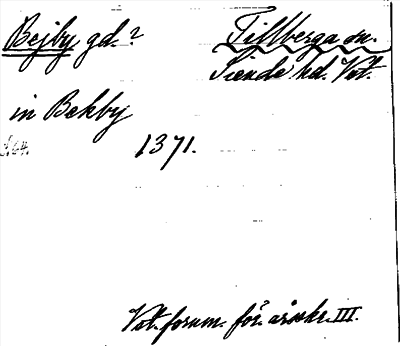 Bejby gd.? Tillberga sn.
Siende hd. Vst.
in Bekby
1371.
Vst. fornm. för. årsskr. III.